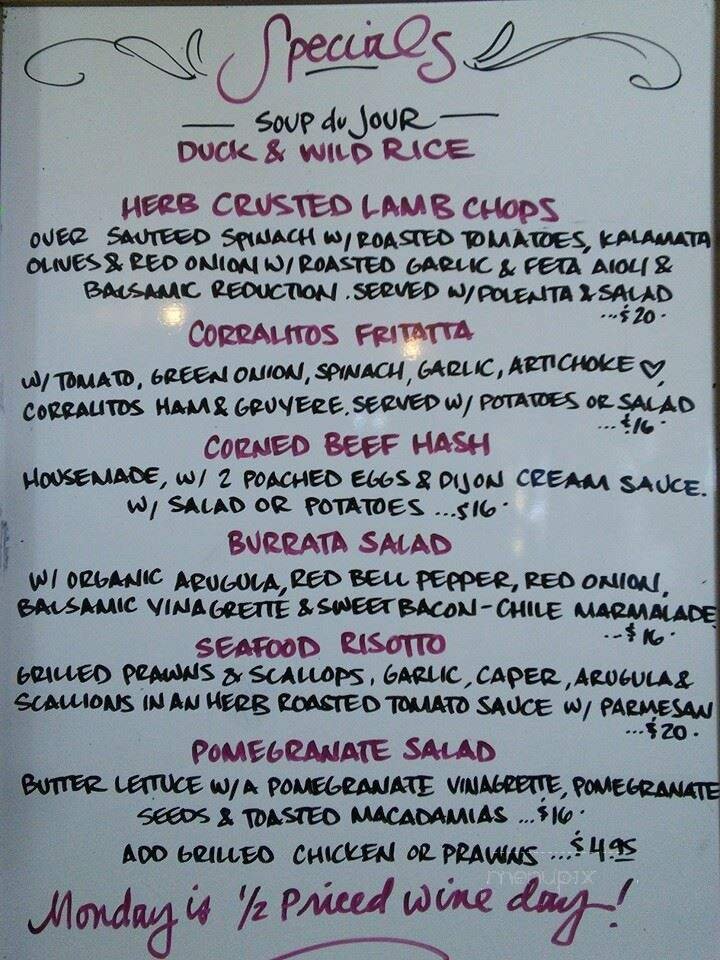 Specials
SOUP du JOUR
DUCK & WILD RICE
HERB CRUSTED LAMB CHOPS
OVER SAUTEED SPINACH W/ ROASTED TOMATOES, KALAMATA
OLIVES & RED ONION W/ ROASTED GARLIC & FETA AIOLI &
BALSAMIC REDUCTION. SERVED W/ POLENTA & SALAD
...$20.
CORRALITOS FRITATTA
W/ TOMATO, GREEN ONION, SPINACH, GARLIC, ARTICHOKE ♡,
CORRALITOS HAM & GRUYERE. SERVED W/ POTATOES OR SALAD
...$16.
CORNED BEEF HASH
HOUSEMADE, W/ 2 POACHED EGGS & DIJON CREAM SAUCE.
W/ SALAD OR POTATOES ...$16.
BURRATA SALAD
W/ ORGANIC ARUGULA, RED BELL PEPPER, RED ONION,
BALSAMIC VINAGRETTE & SWEET BACON-CHILE MARMALADE
..$16.
SEAFOOD RISOTTO
GRILLED PRAWNS & SCALLOPS, GARLIC, CAPER, ARUGULA &
SCALLIONS IN AN HERB ROASTED TOMATO SAUCE W/ PARMESAN
...$20.
POMEGRANATE SALAD
BUTTER LETTUCE W/ A POMEGRANATE VINAGRETTE, POMEGRANATE
SEEDS & TOASTED MACADAMIAS ...$16.
ADD GRILLED CHICKEN OR PRAWNS ...$4.95
menupix
Monday is 1/2 Priced wine day!